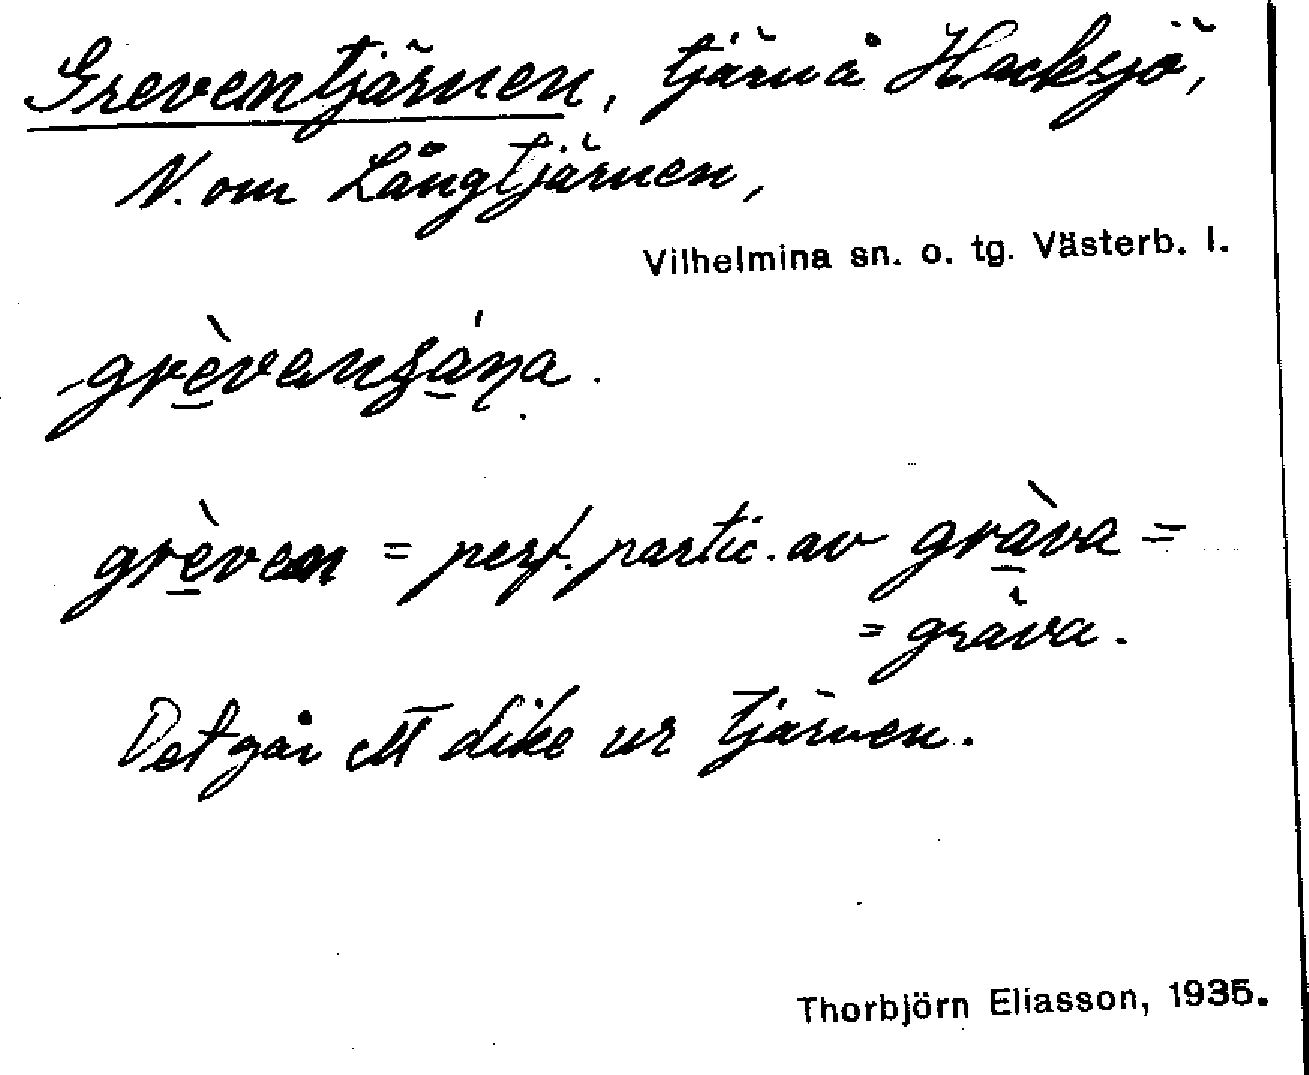 Greventjärnen, tjärn å Hacksjö,
N. om Långtjärnen,
Vilhelmina sn. o. tg. Västerb. l.
grèven = perf. partic. av gràva =
= gräva.
Det går ett dike ur tjärnen.
Thorbjörn Eliasson, 1935.